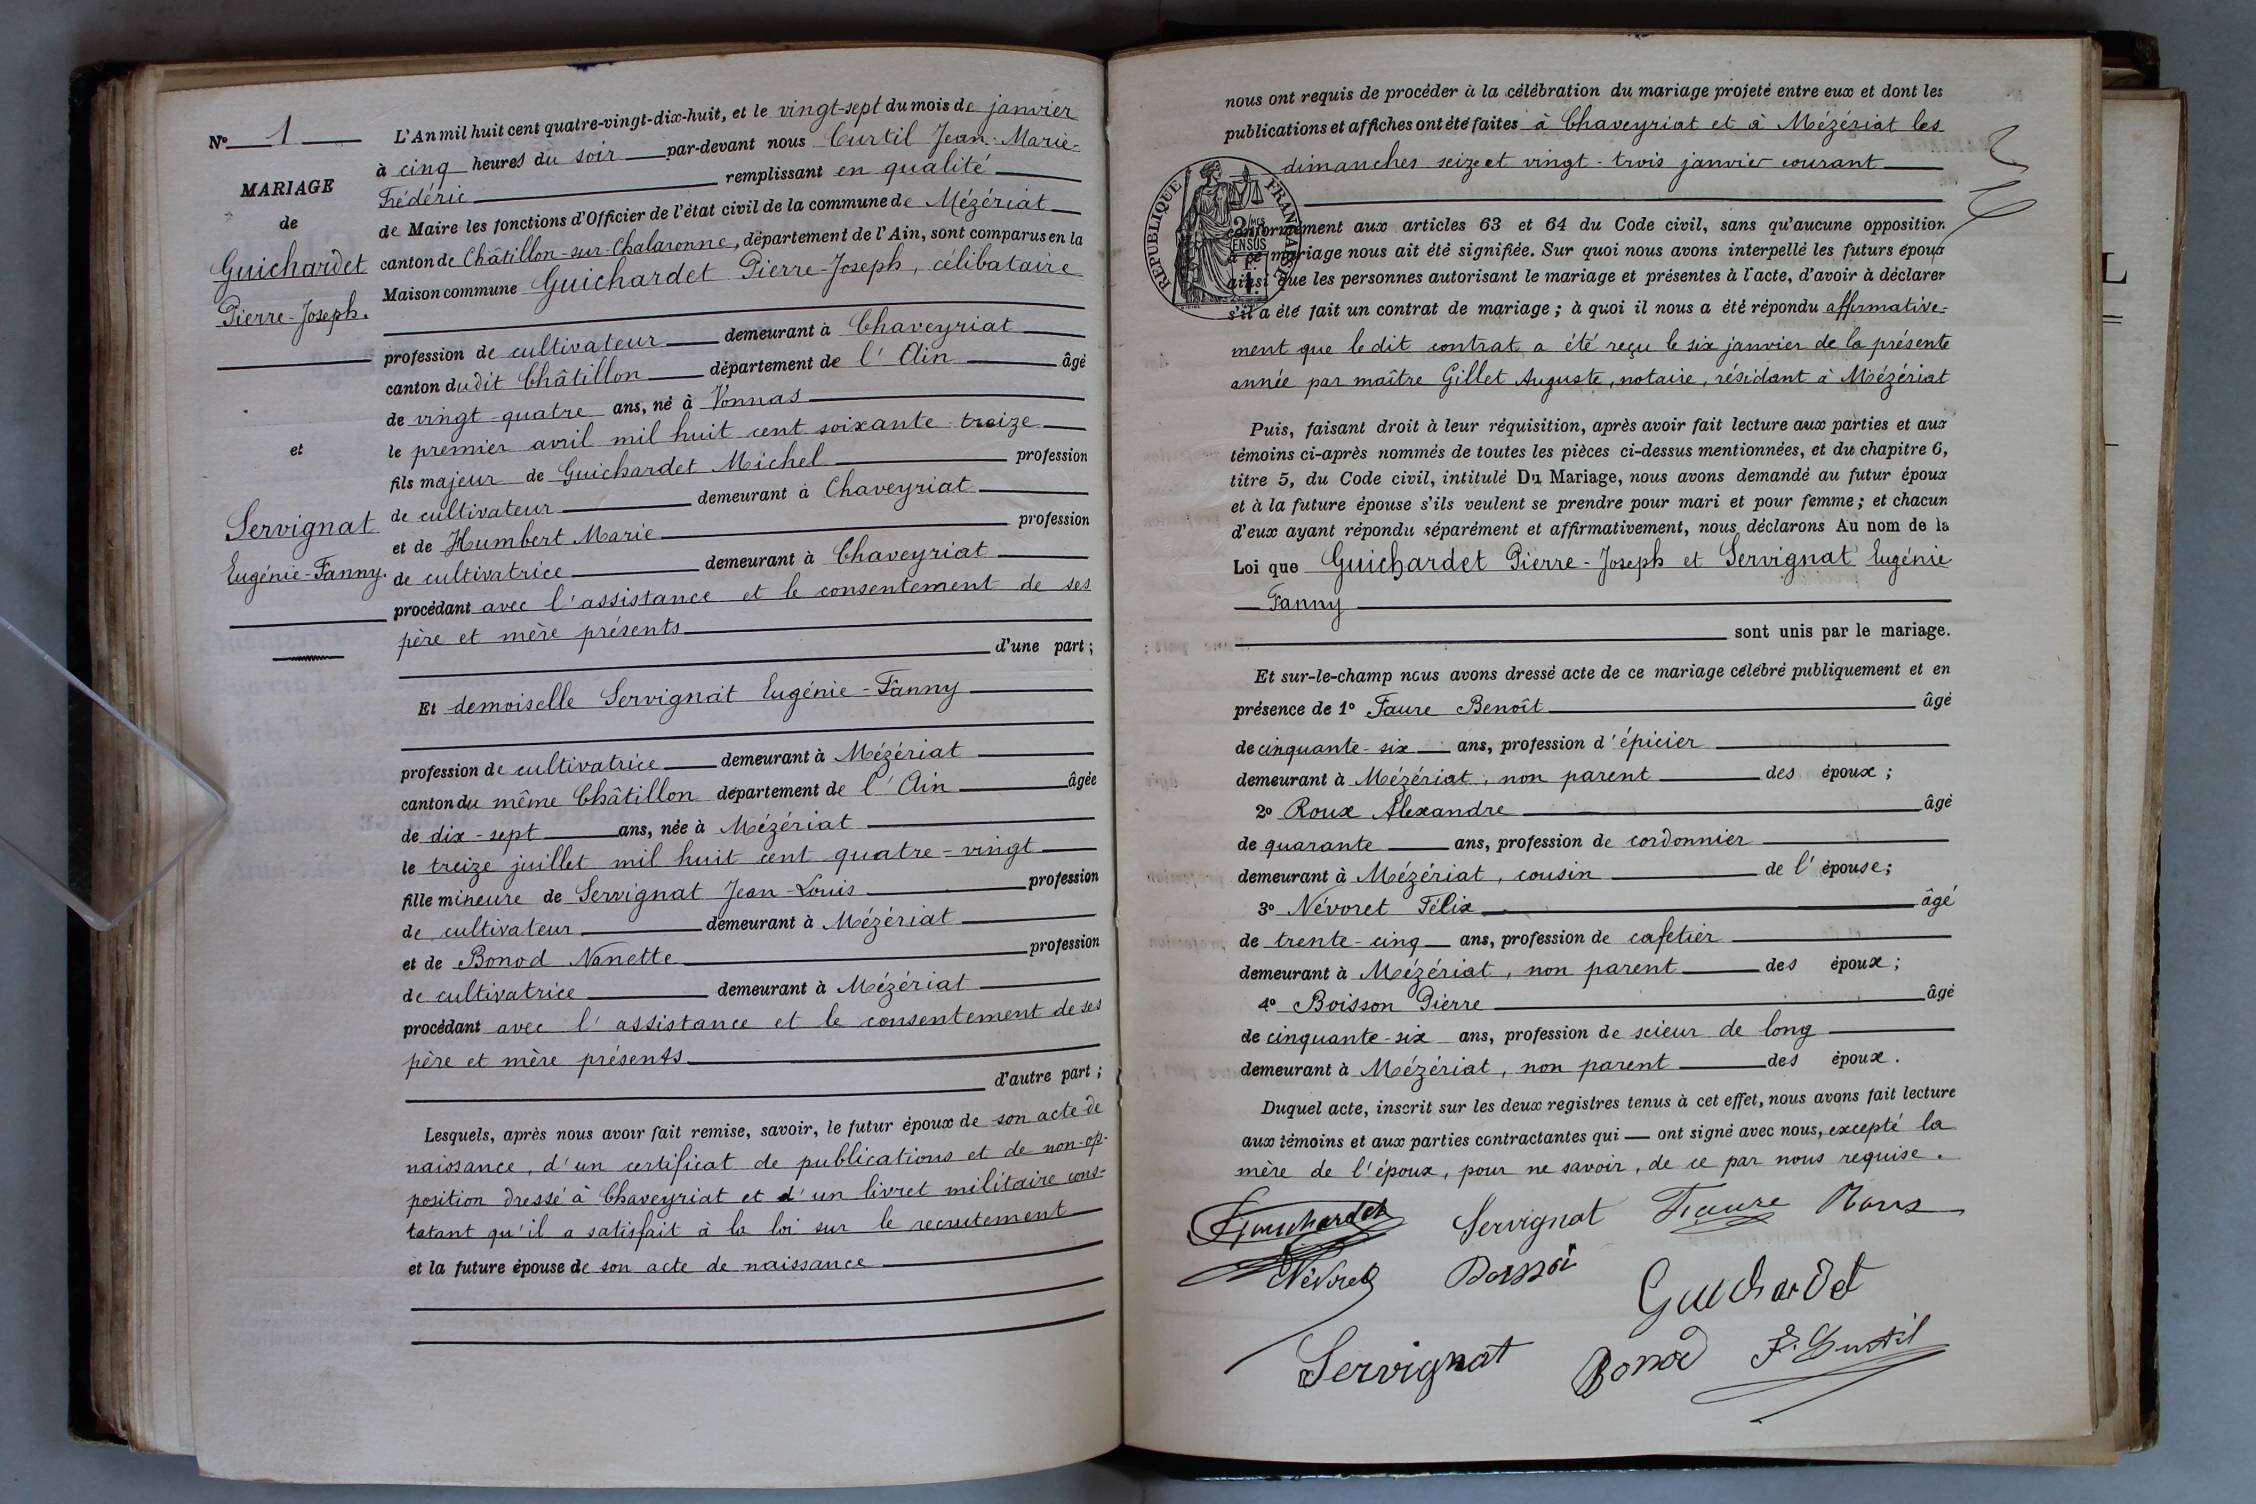 N° 1
MARIAGE
de
Guichardet
Pierre-Joseph.
et
Servignat
Eugénie-Fanny.
L'An mil huit cent quatre-vingt-dix-huit, et le vingt-sept du mois de janvier
à cinq heures du soir par-devant nous Curtil Jean-Marie-
Frédéric remplissant en qualité
de Maire les fonctions d'Officier de l'état civil de la commune de Mézériat
canton de Châtillon-sur-Chalaronne, département de l'Ain, sont comparus en la
Maison commune Guichardet Pierre-Joseph, célibataire
profession de cultivateur demeurant à Chaveyriat
canton dudit Châtillon département de l'Ain âgé
de vingt-quatre ans, né à Vonnas
le premier avril mil huit cent soixante-treize
fils majeur de Guichardet Michel profession
de cultivateur demeurant à Chaveyriat
et de Humbert Marie profession
de cultivatrice demeurant à Chaveyriat
procédant avec l'assistance et le consentement de ses
père et mère présents
d'une part;
Et demoiselle Servignat Eugénie-Fanny
profession de cultivatrice demeurant à Mézériat
canton du même Châtillon département de l'Ain âgée
de dix-sept ans, née à Mézériat
le treize juillet mil huit cent quatre-vingt
fille mineure de Servignat Jean-Louis profession
de cultivateur demeurant à Mézériat
et de Bonod Nanette profession
de cultivatrice demeurant à Mézériat
procédant avec l'assistance et le consentement de ses
père et mère présents
d'autre part;
Lesquels, après nous avoir fait remise, savoir, le futur époux de son acte de
naissance, d'un certificat de publications et de non-op-
position dressé à Chaveyriat et d'un livret militaire cons-
tatant qu'il a satisfait à la loi sur le recrutement
et la future épouse de son acte de naissance
nous ont requis de procéder à la célébration du mariage projeté entre eux et dont les
publications et affiches ont été faites à Chaveyriat et à Mézériat les
dimanches seize et vingt-trois janvier courant
RÉPUBLIQUE FRANÇAISE
conformément aux articles 63 et 64 du Code civil, sans qu'aucune opposition
à ce mariage nous ait été signifiée. Sur quoi nous avons interpellé les futurs époux
ainsi que les personnes autorisant le mariage et présentes à l'acte, d'avoir à déclarer
s'il a été fait un contrat de mariage; à quoi il nous a été répondu affirmative-
ment que le dit contrat a été reçu le six janvier de la présente
année par maître Gillet Auguste, notaire, résidant à Mézériat
Puis, faisant droit à leur réquisition, après avoir fait lecture aux parties et aux
témoins ci-après nommés de toutes les pièces ci-dessus mentionnées, et du chapitre 6,
titre 5, du Code civil, intitulé Du Mariage, nous avons demandé au futur époux
et à la future épouse s'ils veulent se prendre pour mari et pour femme; et chacun
d'eux ayant répondu séparément et affirmativement, nous déclarons Au nom de la
Loi que Guichardet Pierre-Joseph et Servignat Eugénie
Fanny
sont unis par le mariage.
Et sur-le-champ nous avons dressé acte de ce mariage célébré publiquement et en
présence de 1° Faure Benoît âgé
de cinquante-six ans, profession d'épicier
demeurant à Mézériat, non parent des époux;
2° Roux Alexandre âgé
de quarante ans, profession de cordonnier
demeurant à Mézériat, cousin de l'épouse;
3° Névoret Félix âgé
de trente-cinq ans, profession de cafetier
demeurant à Mézériat, non parent des époux;
4° Boisson Pierre âgé
de cinquante-six ans, profession de scieur de long
demeurant à Mézériat, non parent des époux.
Duquel acte, inscrit sur les deux registres tenus à cet effet, nous avons fait lecture
aux témoins et aux parties contractantes qui — ont signé avec nous, excepté la
mère de l'époux, pour ne savoir, de ce par nous requise.
Guichardet Servignat Faure Roux
Névoret Guichardet
Servignat Bonod F. Curtil